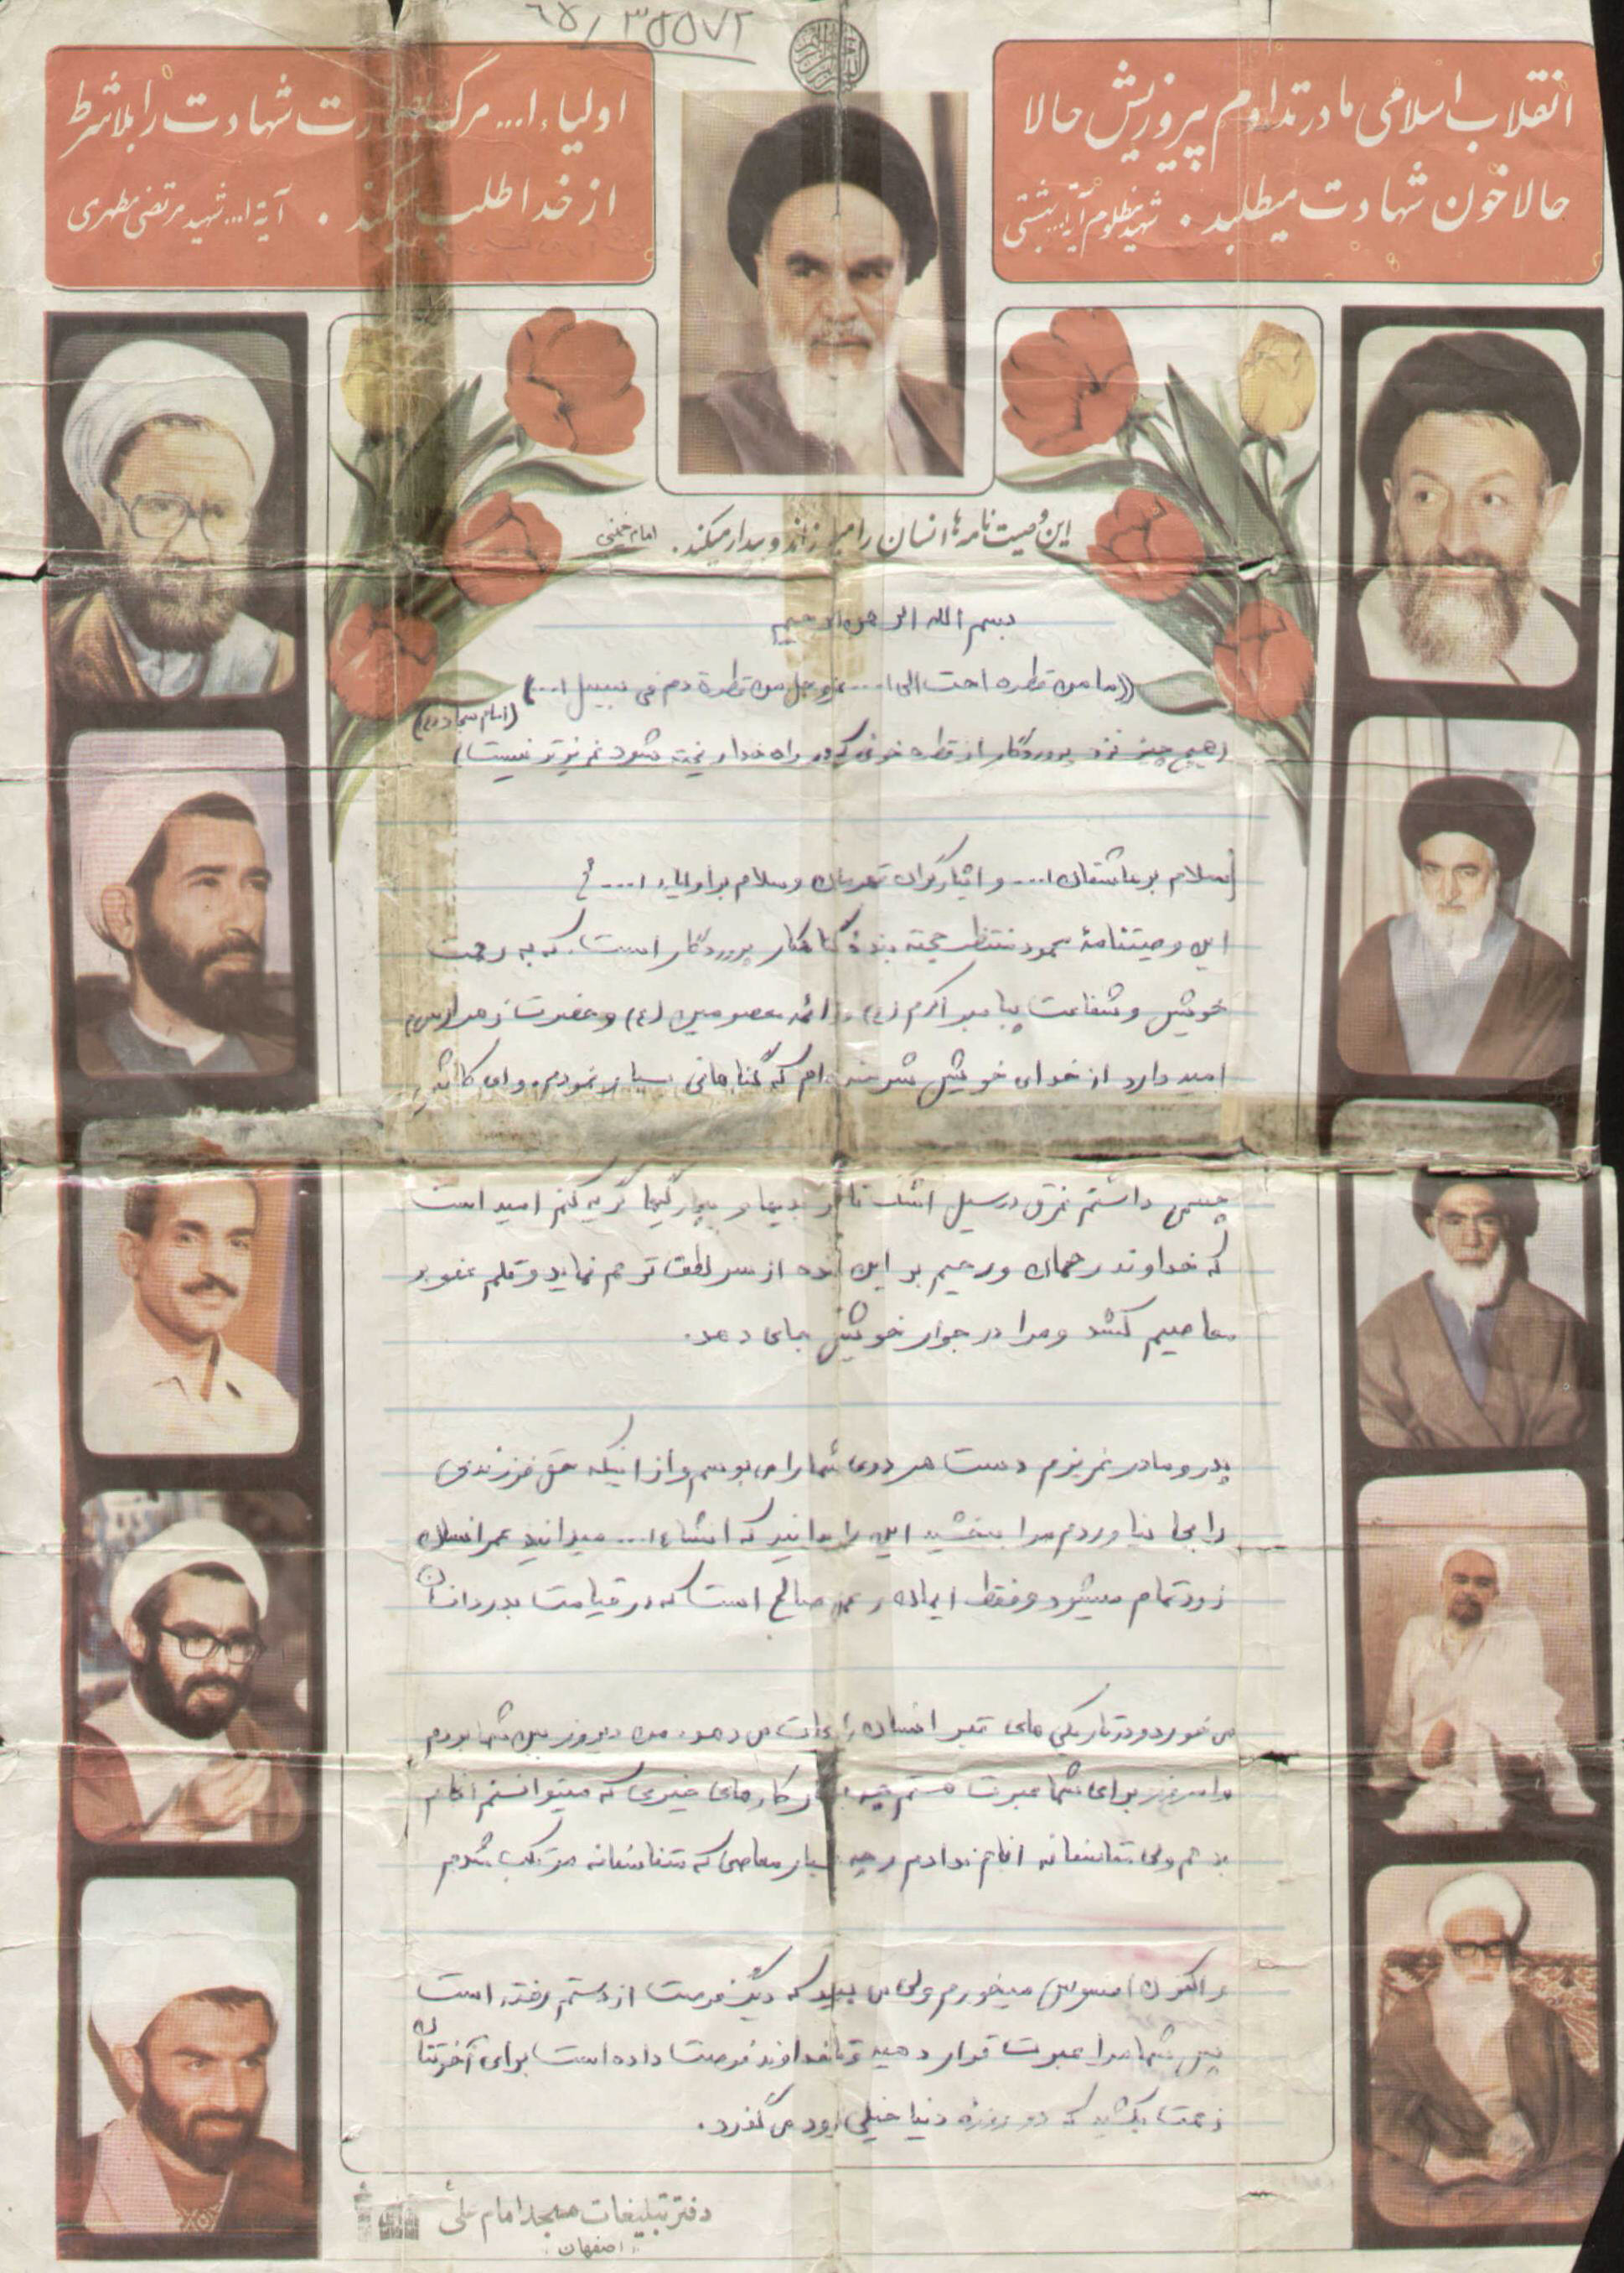 ۶۵/۳۵۵۷۲
انقلاب اسلامی ما در تداوم پیروزیش حالا
حالا خون شهادت میطلبد . شهید مظلوم آیة ا... بهشتی
اولیاء ا... مرگ بصورت شهادت را بلاشرط
از خدا طلب میکند . آیة ا... شهید مرتضی مطهری
این وصیت نامه ها انسان را میلرزاند و بیدار میکند . امام خمینی
بسم الله الرحمن الرحیم
((ما من قطره احب الی ا... عزوجل من قطرة دم فی سبیل ا...))
(امام سجاد (ع))
(هیچ چیز نزد پروردگار از قطره خونی که در راه خدا ریخته شود عزیزتر نیست)
سلام بر عاشقان ا... و ایثارگران قهرمان و سلام بر اولیاء ا...
این وصیتنامهٔ محمود منتظر حجته بندهٔ گناهکار پروردگار است. که به رحمت
خویش و شفاعت پیامبر اکرم (ص) و ائمه معصومین (ع) و حضرت زهرا (س)
امید دارد از خدای خویش شرمنده ام که گناهانی بسیار نمودم. و ای کاش
چشمی داشتم غرق در سیل اشک تا بر و بیچارگیها گریه کنم امید است
که خداوند رحمان و رحیم بر این بنده از سر لطف ترحم نماید و قلم عفو بر
معاصیم کشد و مرا در جوار خویش جای دهد.
پدر و مادر عزیزم دست هر دوی شما را می بوسم و از اینکه حق فرزندی
را بجا نیاوردم مرا ببخشید این را بدانید که انشاء ا... میدانید عمر انسان
زود تمام میشود و فقط ایمان و عمل صالح است که در قیامت بدردانسان
می خورد و در تاریکی های قبر انسان را نجات می دهد. من دیروز بین شما بودم
و امروز برای شما عبرت هستم چه بسیار کارهای خیری که میتوانستم انجام
بدهم ولی متاسفانه انجام ندادم و چه بسیار معاصی که متاسفانه مرتکب شدم
و اکنون افسوس میخورم ولی می بینید که دیگر فرصت از دستم رفته است
پس شما مرا عبرت قرار دهید و تا خداوند فرصت داده است برای آخرتتان
زحمت بکشید که دو روزه دنیا خیلی زود می گذرد.
دفتر تبلیغات مسجد امام علی
اصفهان